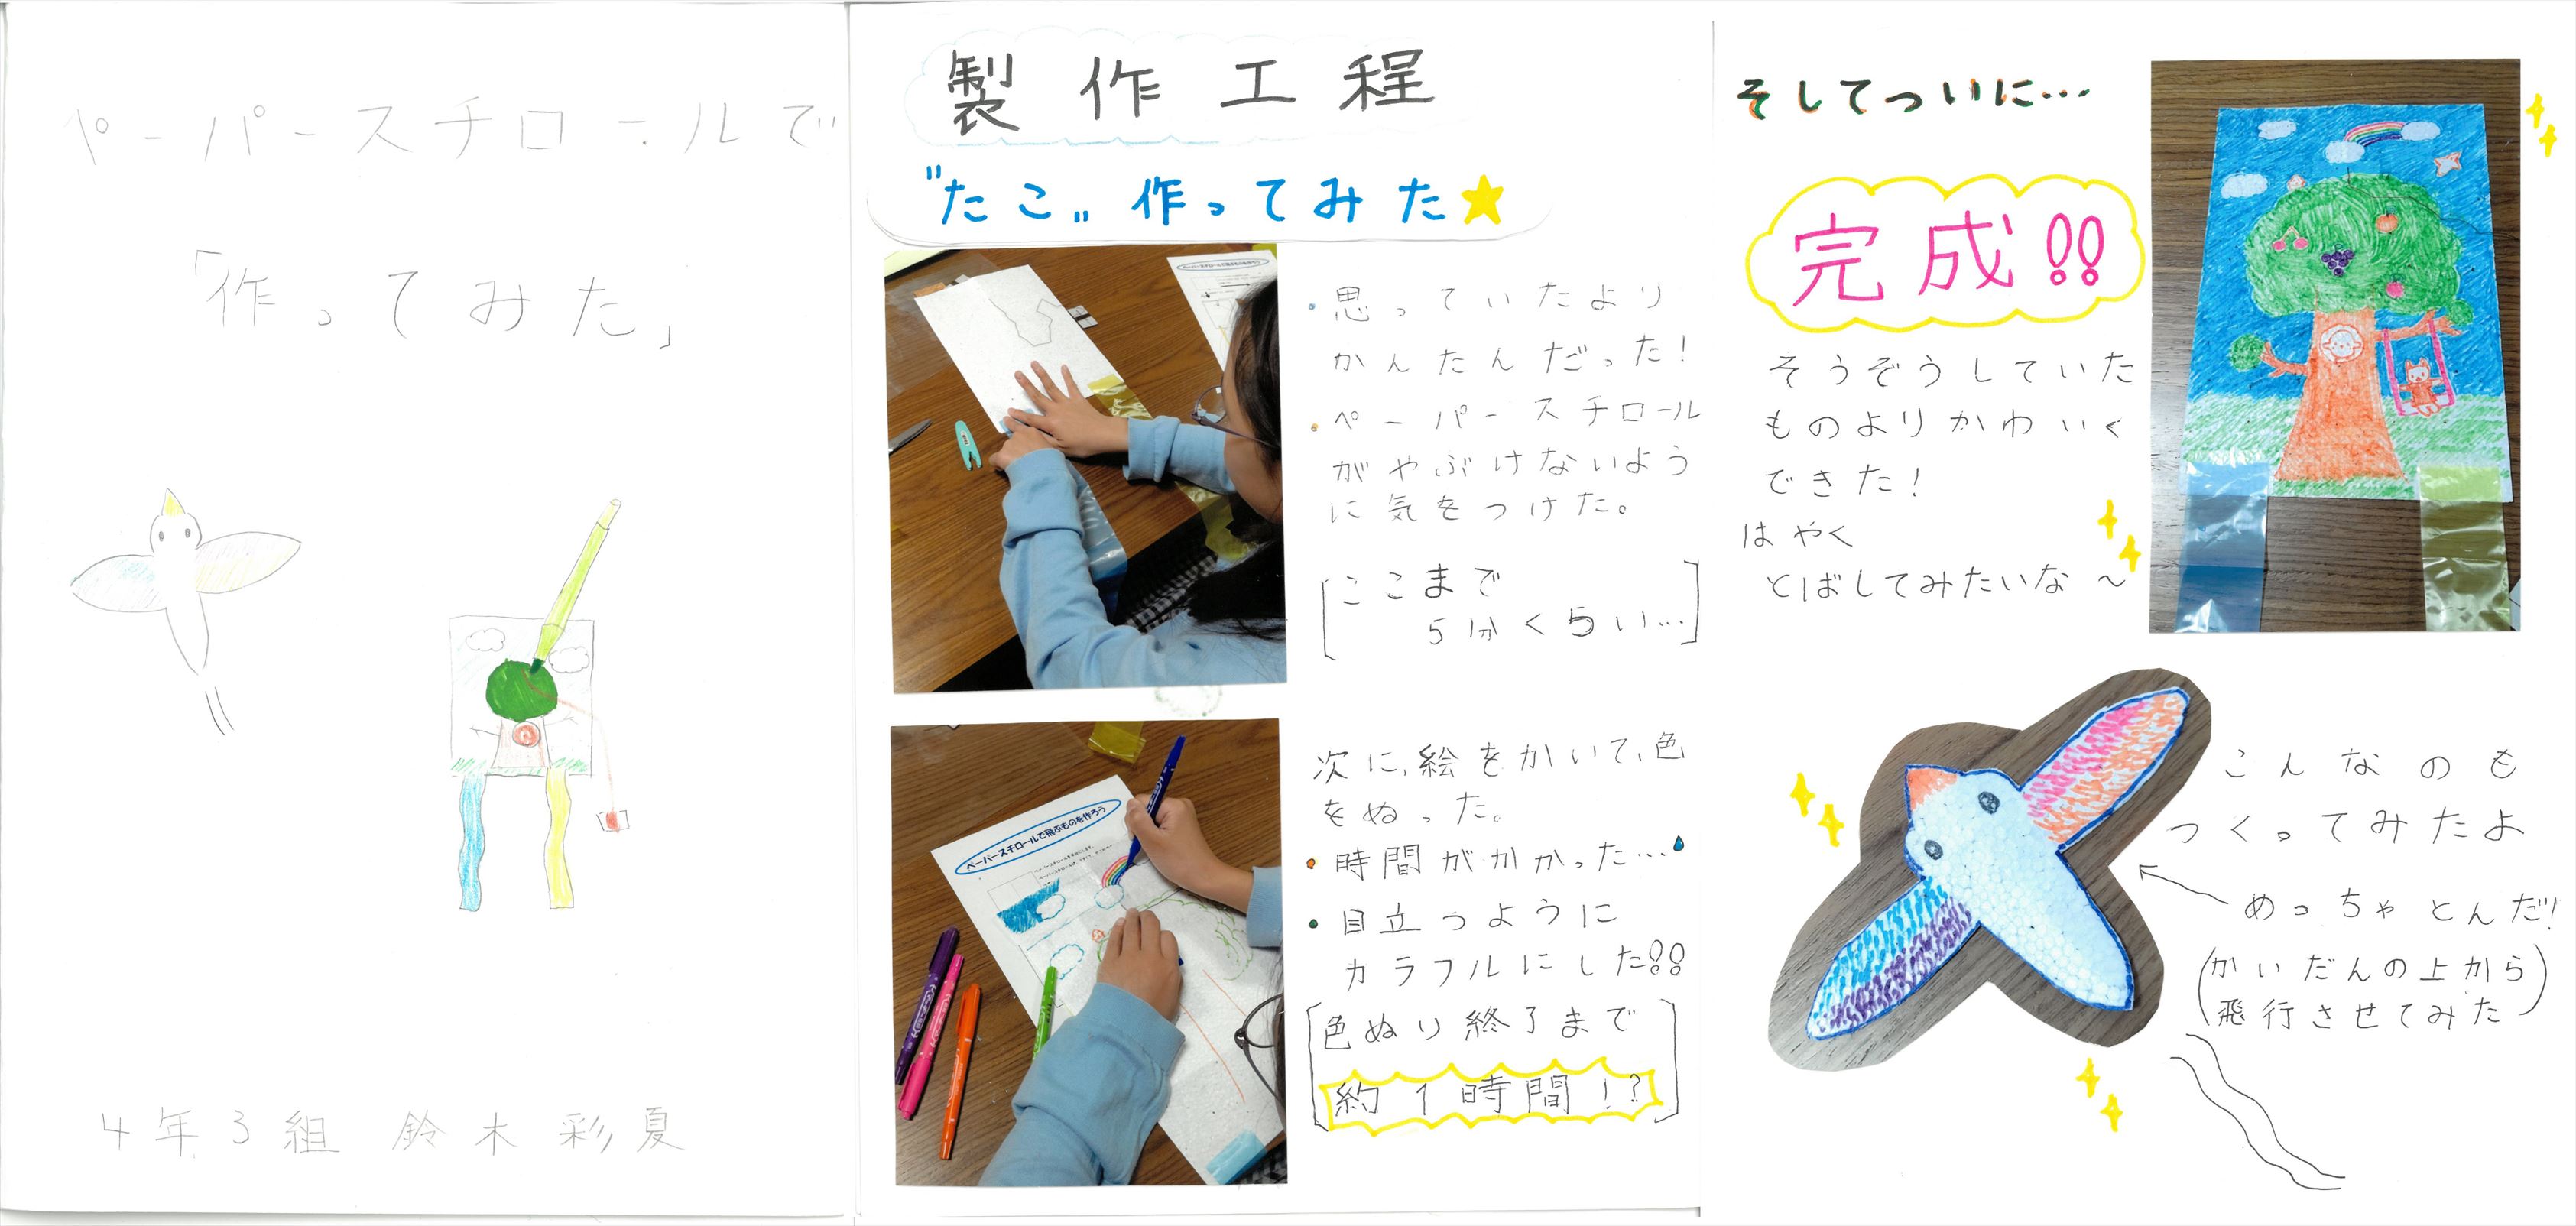 ペーパースチロールで
「作ってみた」
4年3組 鈴木彩夏
製作工程
"たこ„ 作ってみた★
ペーパースチロールで飛ぶものを作ろう
・思っていたより
かんたんだった!
・ペーパースチロール
がやぶけないよう
に気をつけた。
[ここまで
5分くらい…]
ペーパースチロールで飛ぶものを作ろう
次に、絵をかいて、色
をぬった。
・時間がかかった…
・目立つように
カラフルにした!!
[色ぬり終了まで
約1時間!?]
そしてついに…
完成!!
そうぞうしていた
ものよりかわいく
できた!
はやく
とばしてみたいな~
こんなのも
つくってみたよ
めっちゃとんだ!
(かいだんの上から
飛行させてみた)